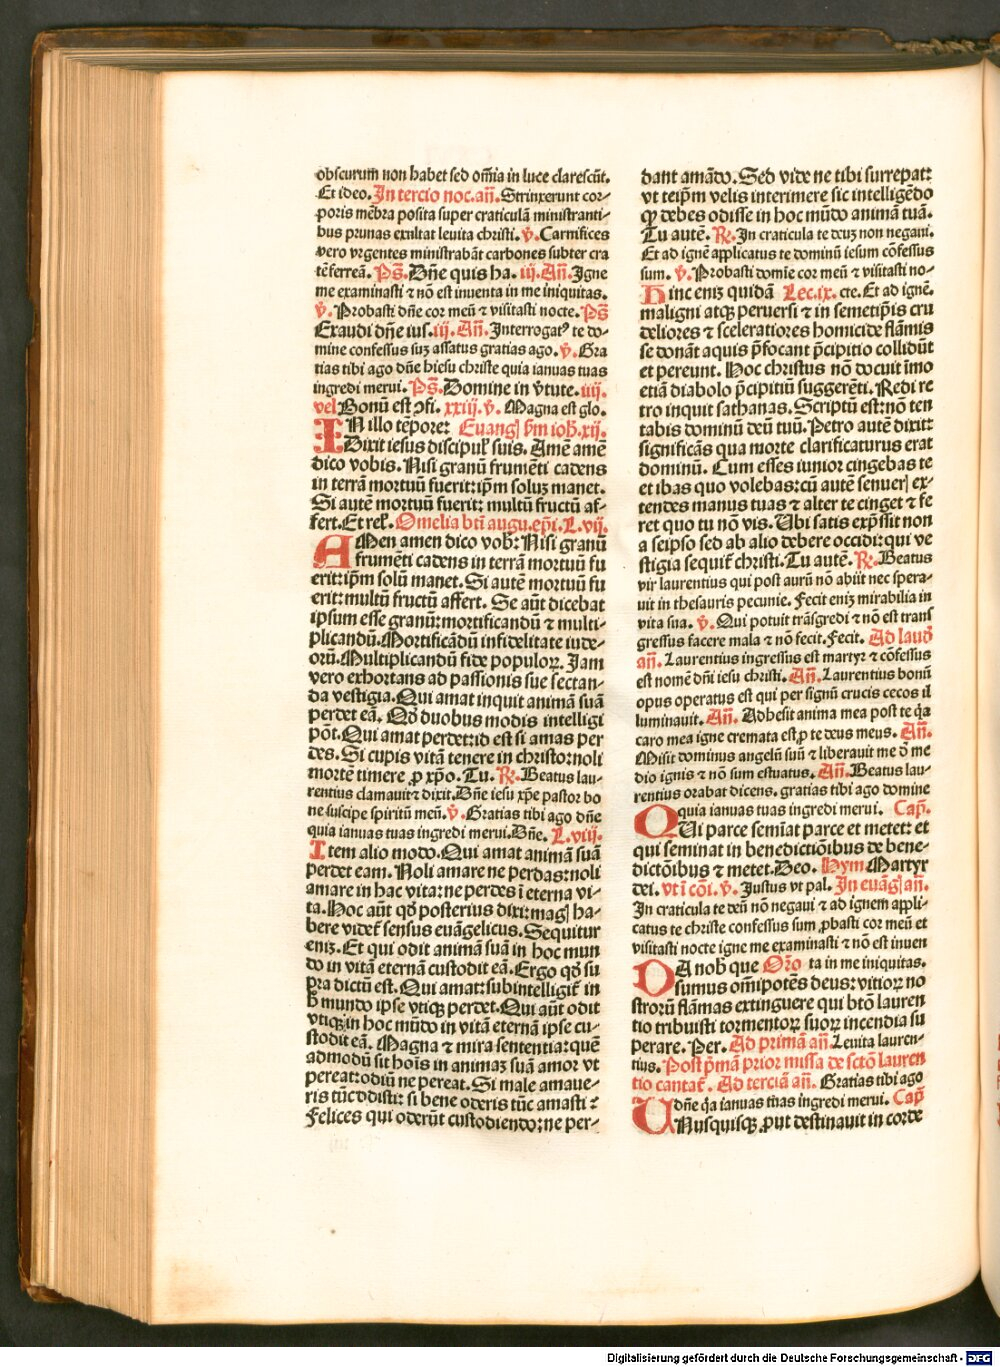 obscurum non habet sed om̄ia in luce clarescūt.
Et ideo. In tercio noc. an̄. Strinxerunt cor⸗
poris mēbra posita super craticulā ministranti⸗
bus prunas exultat leuita christi. v̄. Carnifices
vero vrgentes ministrabāt carbones subter cra
tē ferreā. Ps̄. Dn̄e quis ha. iij. An̄. Igne
me examinasti ⁊ nō est inuenta in me iniquitas.
v̄. Probasti dn̄e cor meū ⁊ visitasti nocte. Ps̄
Exaudi dn̄e ius. iij. An̄. Interrogatꝰ te do⸗
mine confessus suꝫ assatus gratias ago. v̄. Gra
tias tibi ago dn̄e hiesu christe quia ianuas tuas
ingredi merui. Ps̄. Domine in v̄tute. iiij.
vel Bonū est ↄfi. xxiij. v̄. Magna est glo.
IN illo tēpore: Euangl̄ s̄m ioh̄. xij.
Dixit iesus discipul̕ suis. Amē amē
dico vobis. Nisi granū frumēti cadens
in terrā mortuū fuerit: ip̄m soluꝫ manet.
Si autē mortuū fuerit: multū fructū af⸗
fert. Et rel̕. Omelia bt̄i augu. ep̄i. L. vij.
AMen amen dico vob̄: Nisi granū
frumēti cadens in terrā mortuū fu
erit: ip̄m solū manet. Si autē mortuū fu
erit: multū fructū affert. Se aūt dicebat
ipsum esse granū: mortificandū ⁊ multi⸗
plicandū. Mortificādū infidelitate iude⸗
orū. Multiplicandū fide populoꝝ. Jam
vero exhortans ad passionis sue sectan⸗
da vestigia. Qui amat inquit animā suā
perdet eā. Qd̄ duobus modis intelligi
pōt. Qui amat perdet: id est si amas per
des. Si cupis vitā tenere in christo: noli
mortē timere ꝓ xp̄o. Tu. R̄. Beatus lau⸗
rentius clamauit ⁊ dixit. Dn̄e iesu xp̄e pastor bo
ne suscipe spiritū meū. v̄. Gratias tibi ago dn̄e
quia ianuas tuas ingredi merui. Dn̄e. L. viij.
Item alio modo. Qui amat animā suā
perdet eam. Noli amare ne perdas: noli
amare in hac vita: ne perdes ī eterna vi⸗
ta. Hoc aūt qd̄ posterius dixi: magl̄ ha⸗
bere videt̄ sensus euāgelicus. Sequitur
eniꝫ. Et qui odit animā suā in hoc mun
do in vitā eternā custodit eā. Ergo qd̄ su
pra dictū est. Qui amat: subintelligit̄ in
h̄ mundo ipse vtiqꝫ perdet. Qui aūt odit
vtiqꝫ in hoc mūdo in vitā eternā ipse cu⸗
stodit eā. Magna ⁊ mira sententia: quē
admodū sit hoīs in animaꝫ suā amor vt
pereat: odiū ne pereat. Si male amaue⸗
ris tūc odisti: si bene oderis tūc amasti ⁊
Felices qui oderūt custodiendo: ne per⸗
dant amādo. Sed vide ne tibi surrepat:
vt teip̄m velis interimere sic intelligēdo
ꝙ debes odisse in hoc mūdo animā tuā.
Tu autē. R̄. In craticula te deuꝫ non negaui.
Et ad ignē applicatus te dominū iesum cōfessus
sum. v̄. Probasti domīe cor meū ⁊ visitasti no⸗
Hinc eniꝫ quidā Lec. ix. cte. Et ad ignē.
maligni atqꝫ peruersi ⁊ in semetip̄is cru
deliores ⁊ sceleratiores homicide flāmis
se donāt aquis p̄focant p̄cipitio collidūt
et pereunt. Hoc christus nō docuit īmo
etiā diabolo p̄cipitiū suggerēti. Redi re
tro inquit sathanas. Scriptū est: nō ten
tabis dominū deū tuū. Petro autē dixit:
significās qua morte clarificaturus erat
dominū. Cum esses iunior cingebas te
et ibas quo volebas: cū autē senuerl̄ ex⸗
tendes manus tuas ⁊ alter te cinget ⁊ fe
ret quo tu nō vis. Ubi satis exp̄ssit non
a seipso sed ab alio debere occidi: qui ve
stigia sequit̄ christi. Tu autē. R̄. Beatus
vir laurentius qui post aurū nō abiit nec spera⸗
uit in thesauris pecunie. Fecit eniꝫ mirabilia in
vita sua. v̄. Qui potuit trāsgredi ⁊ nō est trans
gressus facere mala ⁊ nō fecit. Fecit. Ad laud̄
an̄. Laurentius ingressus est martyr ⁊ cōfessus
est nomē dn̄i iesu christi. An̄. Laurentius bonū
opus operatus est qui per signū crucis cecos il
luminauit. An̄. Adhesit anima mea post te q̄a
caro mea igne cremata est ꝓ te deus meus. An̄.
Misit dominus angelū suū ⁊ liberauit me d̄ me
dio ignis ⁊ nō sum estuatus. An̄. Beatus lau⸗
rentius orabat dicens. gratias tibi ago domine
quia ianuas tuas ingredi merui. Cap̄.
QUi parce semīat parce et metet: et
qui seminat in benedictiōibus de bene⸗
dictōibus ⁊ metet. Deo. Hym Martyr
dei. vt ī cōi. v̄. Justus vt pal. In euāgl̄ an̄.
In craticula te deū nō negaui ⁊ ad ignem appli⸗
catus te christe confessus sum ꝓbasti cor meū et
visitasti nocte igne me examinasti ⁊ nō est inuen
DA nob̄ que Or̄o ta in me iniquitas.
sumus om̄ipotēs deus: vitioꝝ no
strorū flāmas extinguere qui btō lauren
tio tribuisti tormentoꝝ suoꝝ incendia su
perare. Per. Ad primā an̄ Leuita lauren⸗
tius. Post p̄mā prior missa de sctō lauren
tio cantat̄. Ad terciā an̄. Gratias tibi ago
dn̄e q̄a ianuas tuas ingredi merui. Cap̄
UNusquisqꝫ ꝓut destinauit in corde
Digitalisierung gefördert durch die Deutsche Forschungsgemeinschaft - DFG